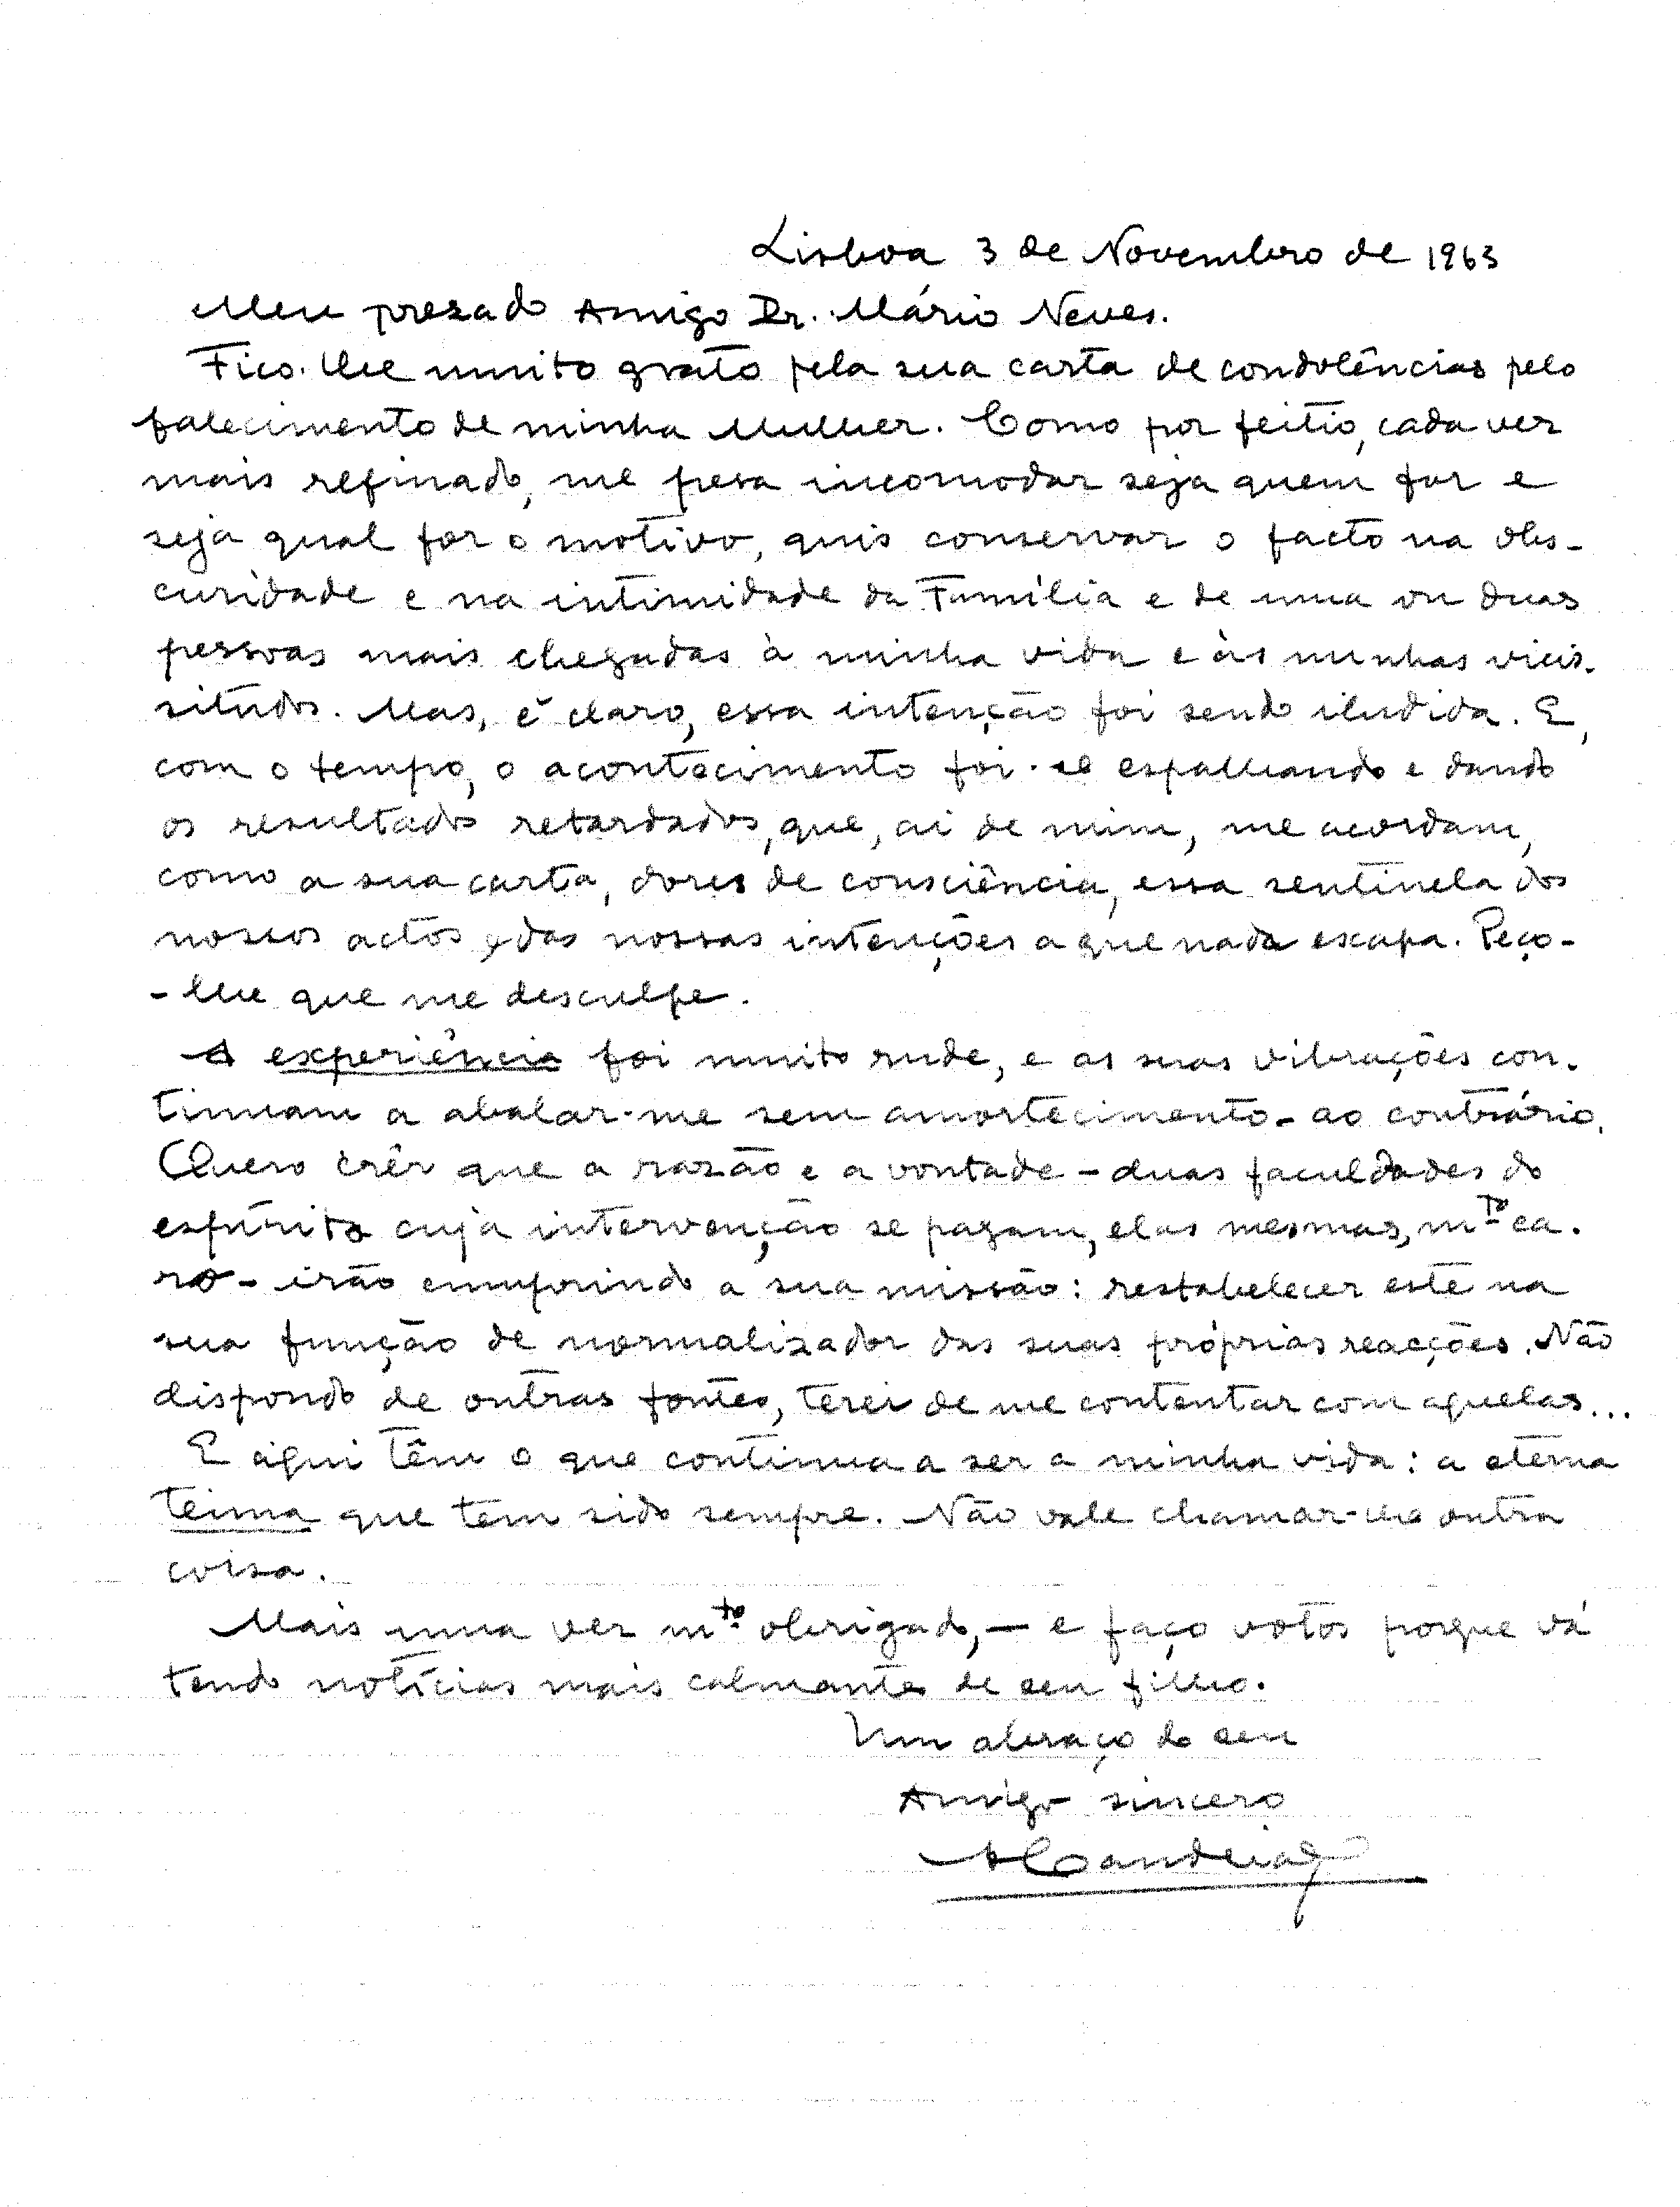 Lisboa 3 de Novembro de 1963
Meu prezado Amigo Dr. Mário Neves.
Fico-lhe muito grato pela sua carta de condolências pelo
falecimento de minha Mulher. Como por feitio, cada vez
mais refinado, me pesa incomodar seja quem for e
seja qual for o motivo, quis conservar o facto na obs-
curidade e na intimidade da Família e de uma ou duas
pessoas mais chegadas à minha vida e às minhas vicis-
situdes. Mas, é claro, essa intenção foi sendo iludida. E,
com o tempo, o acontecimento foi-se espalhando e dando
os resultados retardados, que, ai de mim, me acordam,
como a sua carta, dores de consciência, essa sentinela dos
nossos actos e das nossas intenções a que nada escapa. Peço-
-lhe que me desculpe.
A experiência foi muito rude, e as suas vibrações con-
tinuam a abalar-me sem amortecimento - ao contrário.
Quero crêr que a razão e a vontade - duas faculdades do
espírito cuja intervenção se pagam, elas mesmas, mto ca-
ro - irão cumprindo a sua missão: restabelecer este na
sua função de normalizador das suas próprias reacções. Não
dispondo de outras fontes, terei de me contentar com aquelas...
E aqui têm o que continua a ser a minha vida: a eterna
teima que tem sido sempre. Não vale chamar-lhe outra
coisa.
Mais uma vez mto obrigado, — e faço votos porque vá
tendo notícias mais calmantes de seu filho.
Um abraço do seu
Amigo sincero
ACandeias